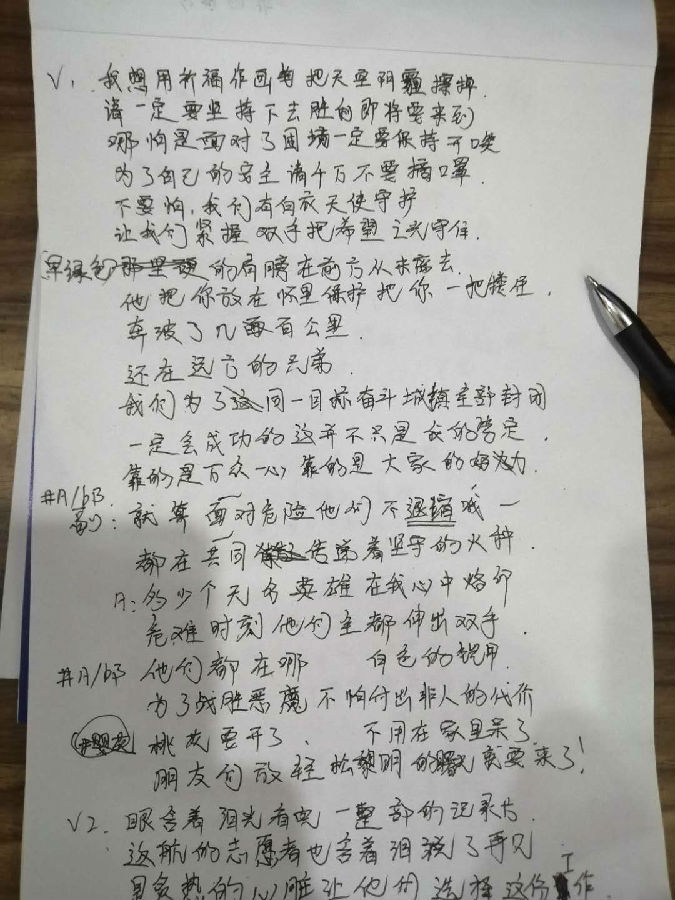 V1. 我想用祈福作画笔把天空阴霾擦掉.
请一定要坚持下去胜利即将要来到
哪怕是面对了困境一定要保持开唉
为了自己的安全请千万不要摘口罩.
不要怕,我们有白衣天使守护
让我们紧握双手把希望之光守住.
军绿色 的肩膀在前方从未离去.
他把你放在怀里保护把你一把搂住.
车波了几百公里.
还在远方的兄弟.
我们为了同一目标奋斗城镇全部封闭
一定会成功的这并不只是我的笃定.
靠的是万众一心靠的是大家的努力.
#A/bB
副: 就算面对危险他们不退缩哦一
都在共同 传递着坚守的火种.
A: 多少个无名英雄在我心中烙印
危难时刻他们全都伸出双手.
#A/bB 他们都在哪 白色的铠甲.
为了战胜恶魔不怕付出非人的代价
樱花 桃花要开了、 不用在家里呆了.
朋友们放轻松黎明的曙光就要来了!
V2. 眼含着泪光看完一整部的记录片.
返航的志愿者也含着泪说了再见
是炙热的心脏让他们选择这份工作.